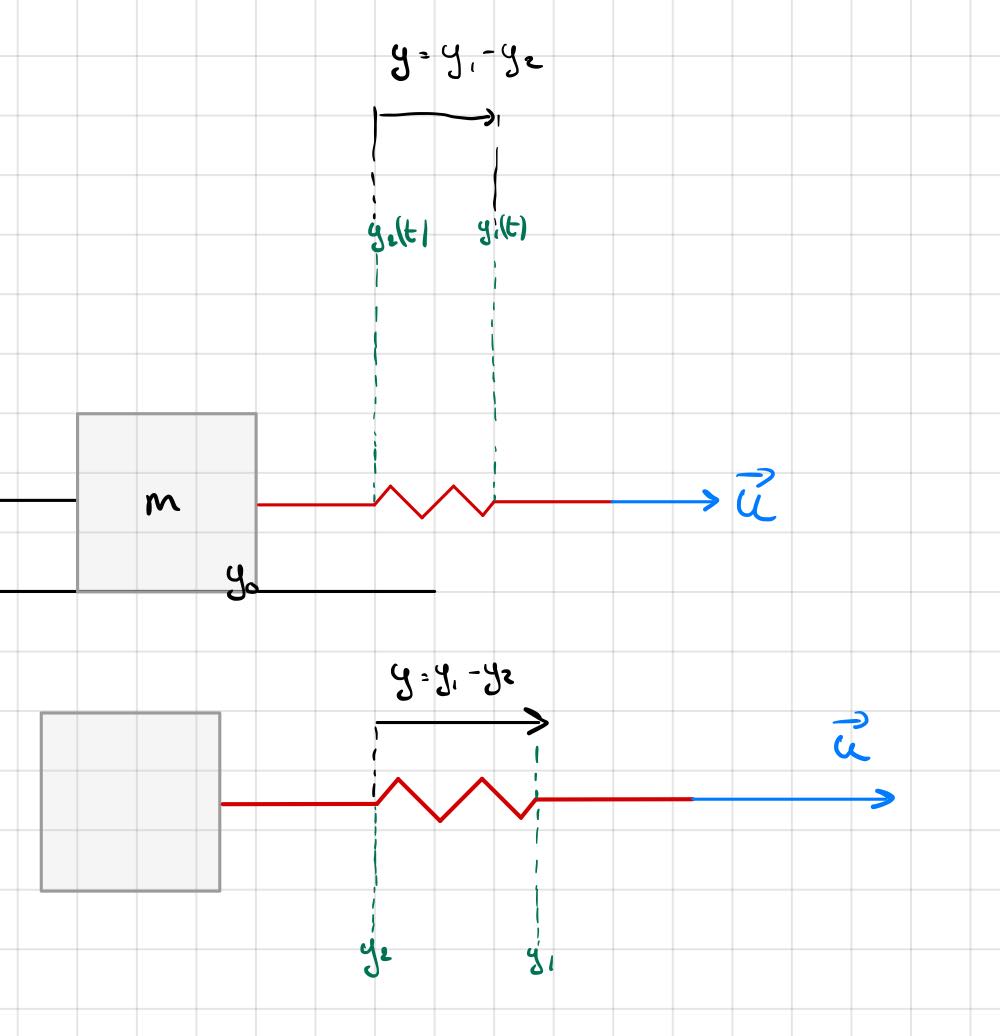 y = y₁ - y₂
y₂(t) y₁(t)
m
u⃗
y₀
y = y₁ - y₂
u⃗
y₂ y₁